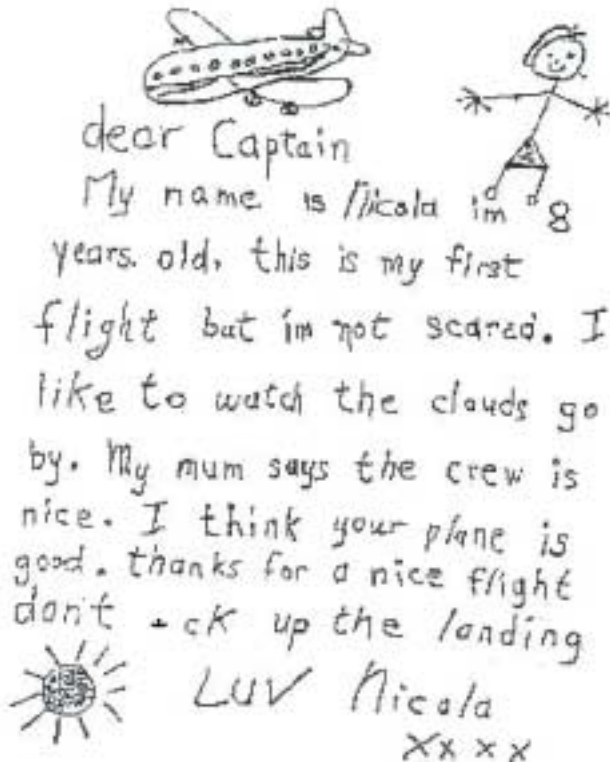 dear Captain
My name is Nicola im 8
years. old, this is my first
flight but im not scared. I
like to watch the clouds go
by. My mum says the crew is
nice. I think your plane is
good. thanks for a nice flight
don't cK up the landing
LUV Nicola
xxxx